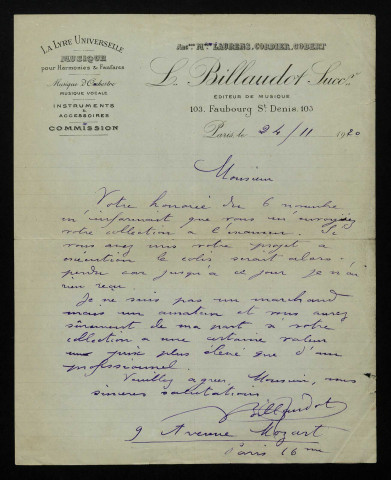 LA LYRE UNIVERSELLE
MUSIQUE
pour Harmonies & Fanfares
Musique d'Orchestre
MUSIQUE VOCALE
INSTRUMENTS
ACCESSOIRES
COMMISSION
Ancnes Mons LEUDENS, CORDIER, GOBERT
L. Billaudot Succr
EDITEUR DE MUSIQUE
103, Faubourg St Denis, 103
Paris, le 24/11 1920
Monsieur
Votre honorée du 6 novembre
m'informait que vous m'envoyez
votre collection a l'examen. Si
vous avez mis votre projet a
exécution le colis serait alors
perdu car jusqu'à ce jour je n'ai
rien reçu.
Je ne suis pas un marchand
mais un amateur et vous aurez
sûrement de ma part si votre
collection a une certaine valeur
un prix plus élevé que d'un
professionnel.
Veuillez agréer, Monsieur, mes
sincères salutations
Billaudot
9 Avenue Mozart
Paris 16me